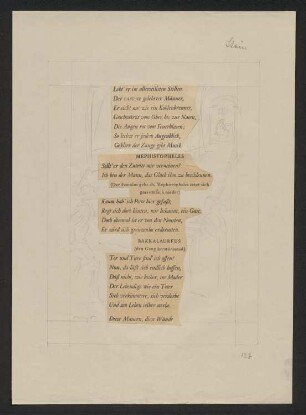 Lebt' er im allerstillsten Stübchen.
Der zart
Er sieht aus wie ein Kohlenbrenner,
Geschwärzt vom Ohre bis zur Nasen,
Die Augen rot vom Feuerblasen,
So lechzt er jedem Augenblick;
Geklirr der Zange gibt Musik.
MEPHISTOPHELES
Sollt' er den Zutritt mir verneinen?
Ich bin der Mann, das Glück ihm zu beschleunen.
(Der Famulus geht ab, Mephistopheles setzt sich
gravitätisch nieder.)
Kaum hab' ich Posto hier gefaßt,
Regt sich dort hinten, mir bekannt, ein Gast.
Doch diesmal ist er von den Neusten,
Er wird sich grenzenlos erdreusten.
BAKKALAUREUS
(den Gang herstürmend)
Tor und Türe find' ich offen!
Nun, da läßt sich endlich hoffen,
Daß nicht, wie bisher, im Moder
Der Lebendige wie ein Toter
Sich verkümmere, sich verderbe
Und am Leben selber sterbe.
Diese Mauern, diese Wände